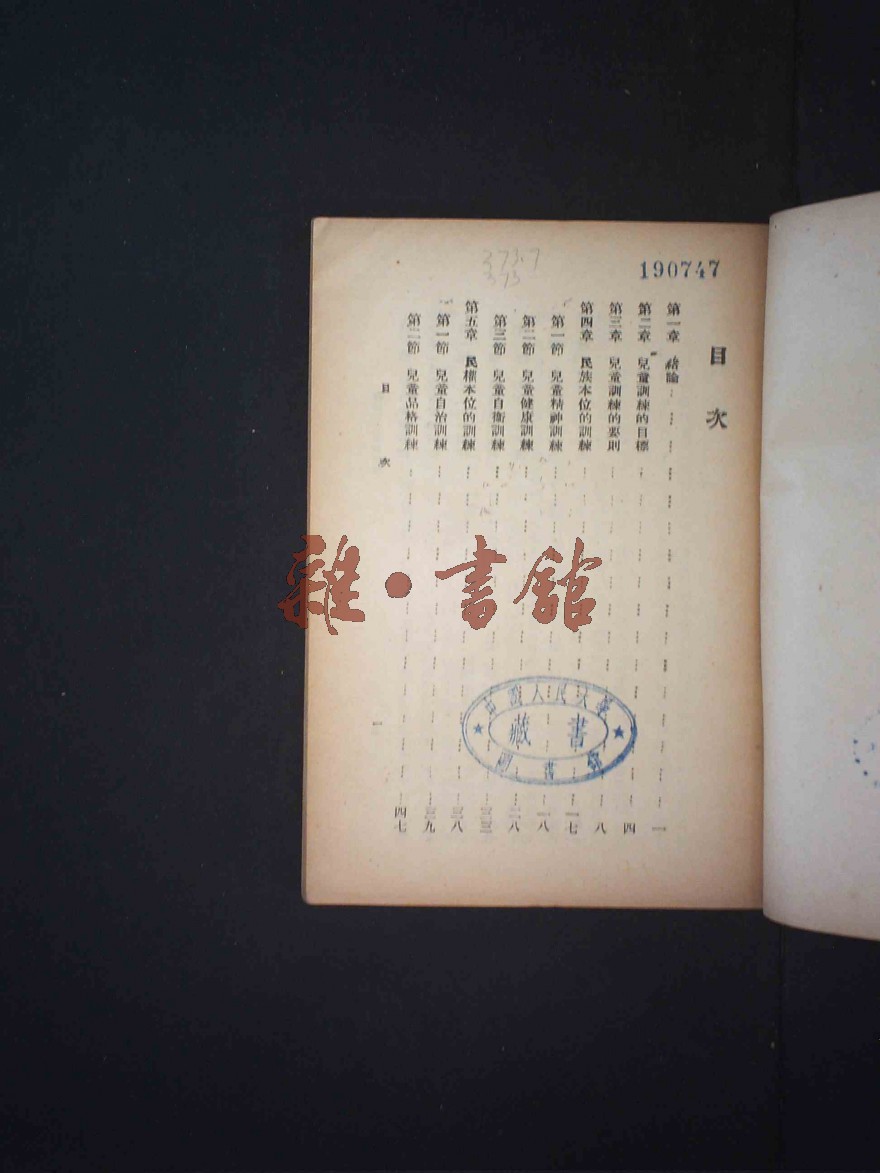 190747
373.7
373
目次
第一章 緒論 一
第二章 兒童訓練的目標 四
第三章 兒童訓練的要則 八
第四章 民族本位的訓練 一七
第一節 兒童精神訓練 一八
第二節 兒童健康訓練 二八
第三節 兒童自衞訓練 三三
第五章 民權本位的訓練 三八
第一節 兒童自治訓練 三九
第二節 兒童品格訓練 四七
目次
一
雜·書館
中國人民大學
藏書
圖書館